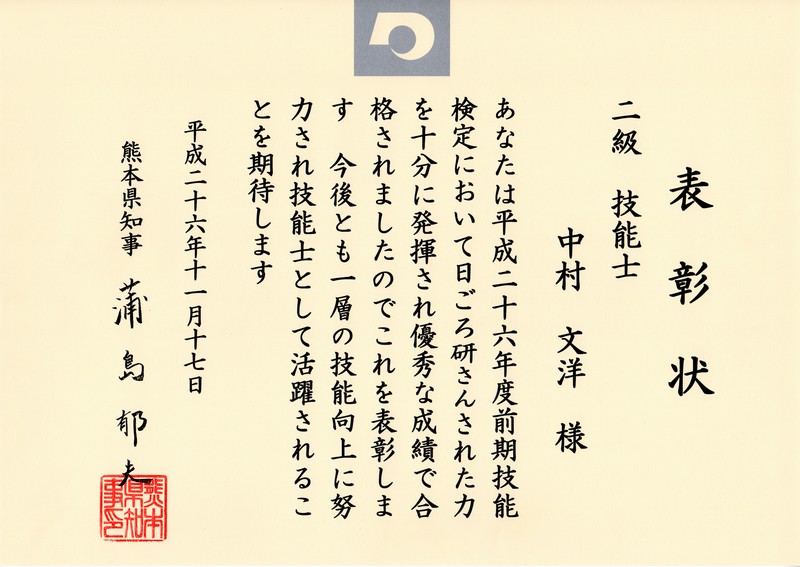 表彰状
二級　技能士
中村　文洋　様
あなたは平成二十六年度前期技能
検定において日ごろ研さんされた力
を十分に発揮され優秀な成績で合
格されましたのでこれを表彰しま
す　今後とも一層の技能向上に努
力され技能士として活躍されるこ
とを期待します
平成二十六年十一月十七日
熊本県知事　蒲島郁夫
熊本県知事印